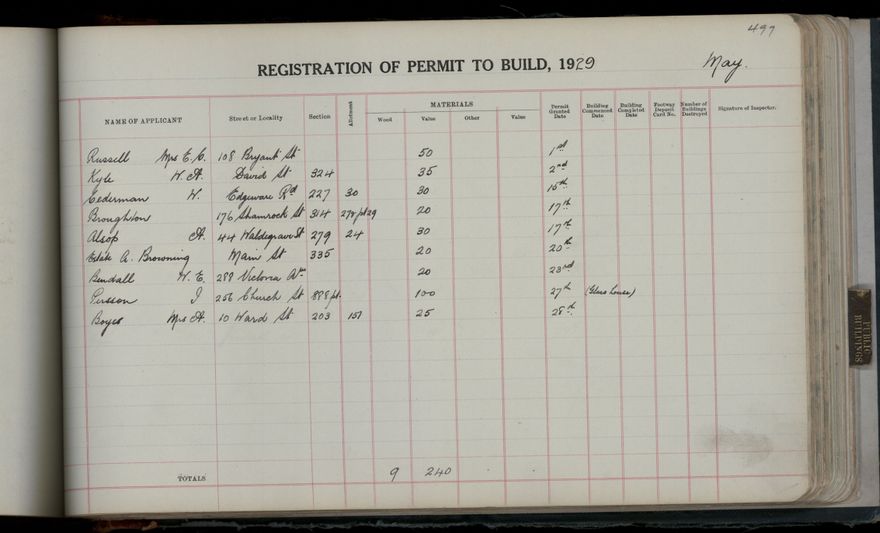 497
REGISTRATION OF PERMIT TO BUILD, 1929 May.
NAME OF APPLICANT Street or Locality Section Allotment MATERIALS Wood Value Other Value Permit Granted Date Building Commenced Date Building Completed Date Footway Deposit Card No. Number of Buildings Destroyed Signature of Inspector.
Russell Mrs E. C. 108 Bryant St 50 1st
Kyle W. A. David St 324 35 2nd
Cederman W. Edgeware Rd 227 30 30 15th
Broughton 176 Shamrock St 314 20 17th
Alsop A. 44 Waldegrave St 279 24 30 17th
Estate A. Browning Main St 335 20 20th
Bendall W. E. 289 Victoria Av 20 23rd
Persson J 256 Church St 888 pt. 100 27th (Glass house)
Boyes Mrs A. 10 Ward St 203 157 25 28th
TOTALS 9 240
PUBLIC BUILDINGS